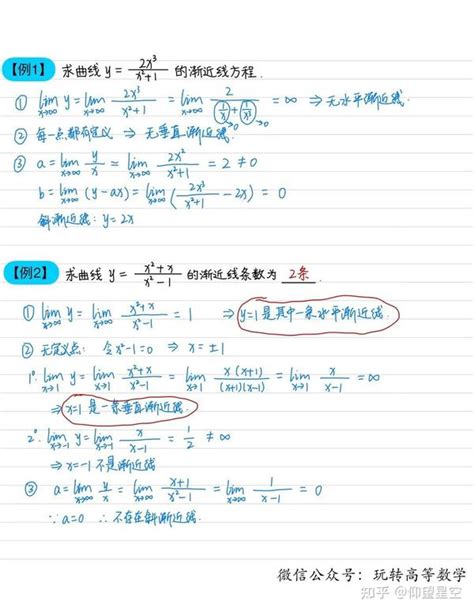 【例1】 求曲线 y = 2x³/(x²+1) 的渐近线方程.
① lim x→∞ y = lim x→∞ 2x³/(x²+1) = lim x→∞ 2/(1/x + 1/x³) = ∞ ⇒ 无水平渐近线.
→0 →0
② 每一点都有定义 ⇒ 无垂直渐近线.
③ a = lim x→∞ y/x = lim x→∞ 2x²/(x²+1) = 2 ≠ 0
b = lim x→∞ (y-ax) = lim x→∞ (2x³/(x²+1) - 2x) = 0
斜渐近线: y = 2x
【例2】 求曲线 y = (x²+x)/(x²-1) 的渐近线条数为 2条.
① lim x→∞ y = lim x→∞ (x²+x)/(x²-1) = 1 ⇒ y=1 是其中一条水平渐近线.
② 无定义点: 令 x²-1=0 ⇒ x = ±1
1°. lim x→1 y = lim x→1 (x²+x)/(x²-1) = lim x→1 x(x+1)/(x+1)(x-1) = lim x→1 x/(x-1) = ∞
⇒ x=1 是一条垂直渐近线.
2°. lim x→-1 y = lim x→-1 x/(x-1) = 1/2 ≠ ∞
⇒ x=-1 不是渐近线
③ a = lim x→∞ y/x = lim x→∞ (x+1)/(x²-1) = lim x→∞ 1/(x-1) = 0
∵ a=0 ∴ 不存在斜渐近线.
微信公众号：玩转高等数学
知乎 @仰望星空